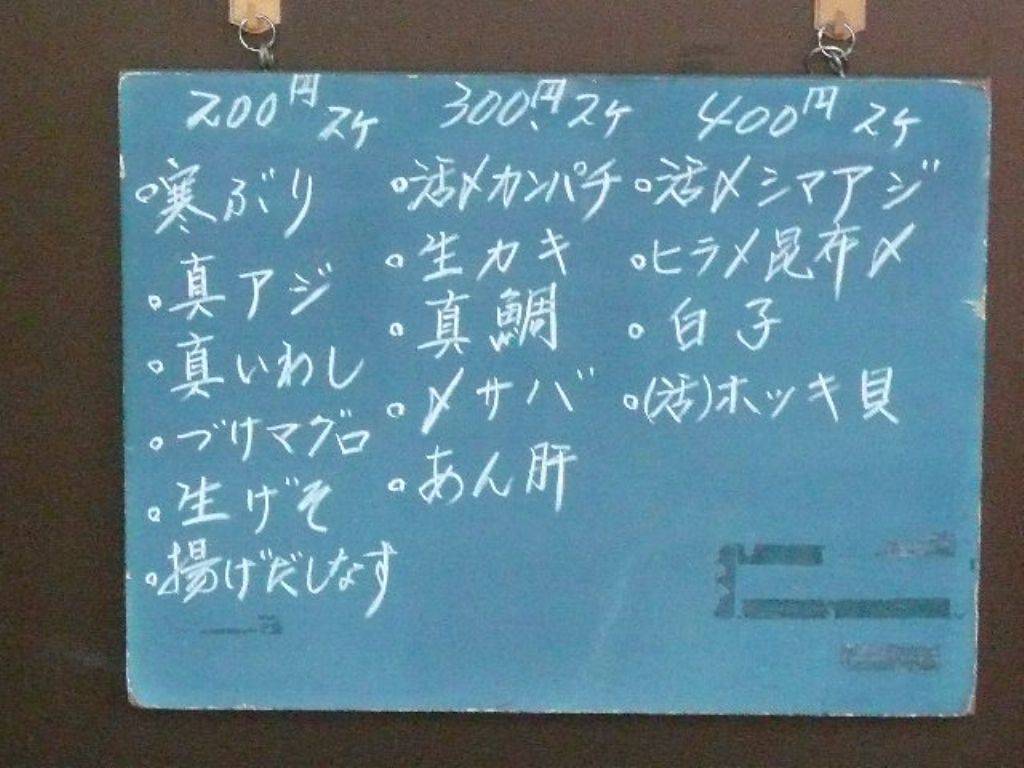 200円 2ケ
寒ぶり
真アジ
真いわし
づけマグロ
生げそ
揚げだしなす
300円 2ケ
活〆カンパチ
生カキ
真鯛
〆サバ
あん肝
400円 2ケ
活〆シマアジ
ヒラメ昆布〆
白子
(活)ホッキ貝